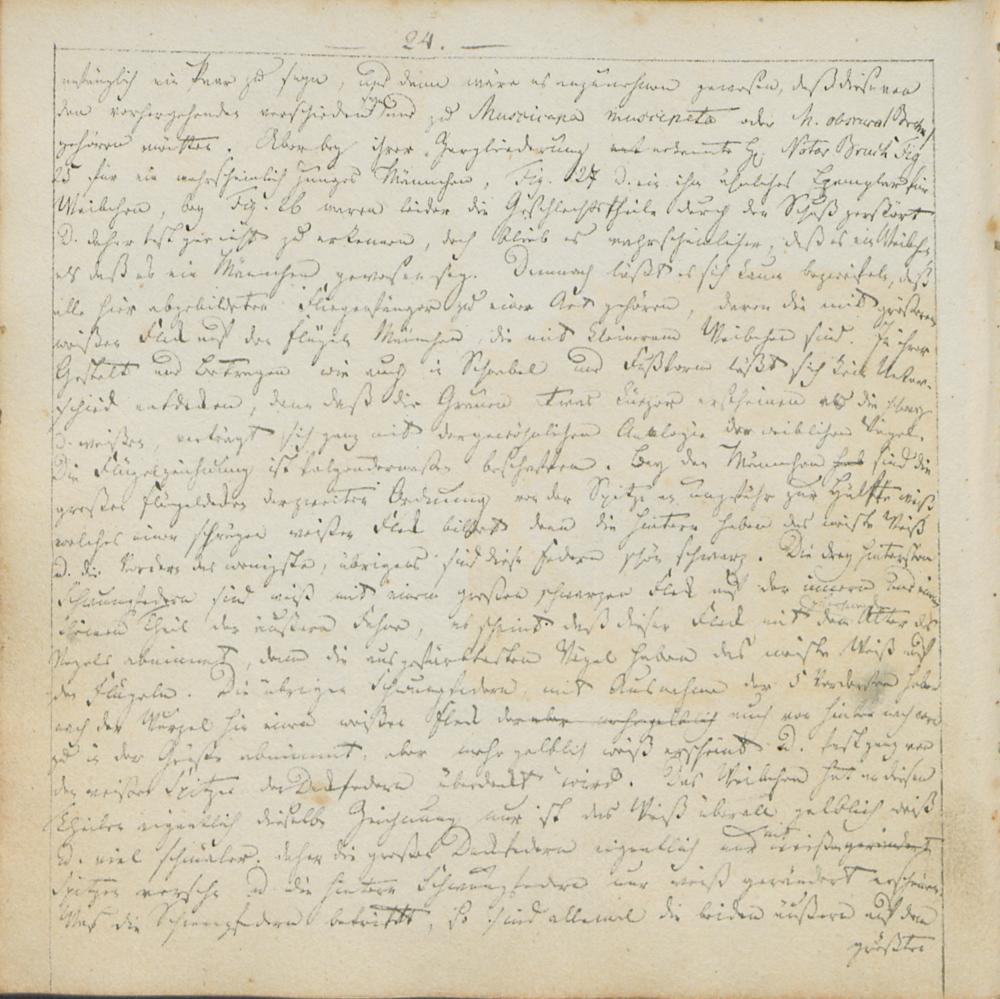 — 24. —
unfänglich ein Paar zu seyn, und dann wäre es anzunehmen gewesen, daß dieses von
den vorhergehenden verschieden und zu Muscicapa muscipeta oder M. obscura Bechst
gehören müßten. Aber bey ihrer Zergliederung erkannte H. Notar Bruch Fig
25 für ein wahrscheinlich junges Männchen, Fig. 27 d. ein ihm ähnliches Exemplar für
Weibchen, bey Fig. 26 waren leider die Geschlechtstheile durch den Schuß zerstört
u. daher fast gar nicht zu erkennen, doch blieb es wahrscheinlicher, daß es ein Weibchen
als daß es ein Männchen gewesen sey. Demnach läßt es sich kaum bezweifeln, daß
alle hier abgebildeten Fliegenfänger zu einer Art gehören, deren die mit größeren
weißen Fleck auf den Flügeln Männchen, die mit kleinerem Weibchen sind. In ihrer
Gestalt und Betragen wie auch in Schnabel und Fußform läßt sich kein Unter-
schied entdecken, denn daß die Grauen etwas kürzer erscheinen als die schwarz
u. weißen, verträgt sich ganz mit der gewöhnlichen Analogie der weiblichen Vögel.
Die Flügelzeichnung ist folgendermaßen beschaffen. Bey den Männchen sind die
großen Flügeldecken der zweiten Ordnung von der Spitze an ungefähr zur Hälfte weiß
welches einen schrägen weißen Fleck bildet denn die hintern haben das meiste Weiß
u. die Vordern das wenigste, übrigens sind diese Federn schön schwarz. Die drey hintersten
Schwungfedern sind weiß mit einem großen schwarzen Fleck auf der innern und einem
kleinern Theil der äußern Fahne, es scheint daß dieser Fleck mit dem Alter des
Vogels abnimmt, denn die ausgefärbtesten Vögel haben das meiste Weiß auf
den Flügeln. Die übrigen Schwungfedern, mit Ausnahme der 5 Vordersten haben
nach der Wurzel hin einen weißen Fleck der auch von hinten nach vorn
zu in der Größe abnimmt, aber mehr gelblich weiß erscheint u. fast ganz von
den weißen Spitzen der Deckfedern überdeckt wird. Das Weibchen hat an diesen
Theilen eigentlich dieselbe Zeichnung nur ist das Weiß überall gelblich weiß
u. viel schmäler. daher die großen Deckfedern eigentlich nur mit weißen
Spitzen versehen u. die hintern Schwungfedern nur weiß gerändert erscheinen.
Was die Schwanzfedern betrifft, so sind allemal die beiden äußern auf dem
größten